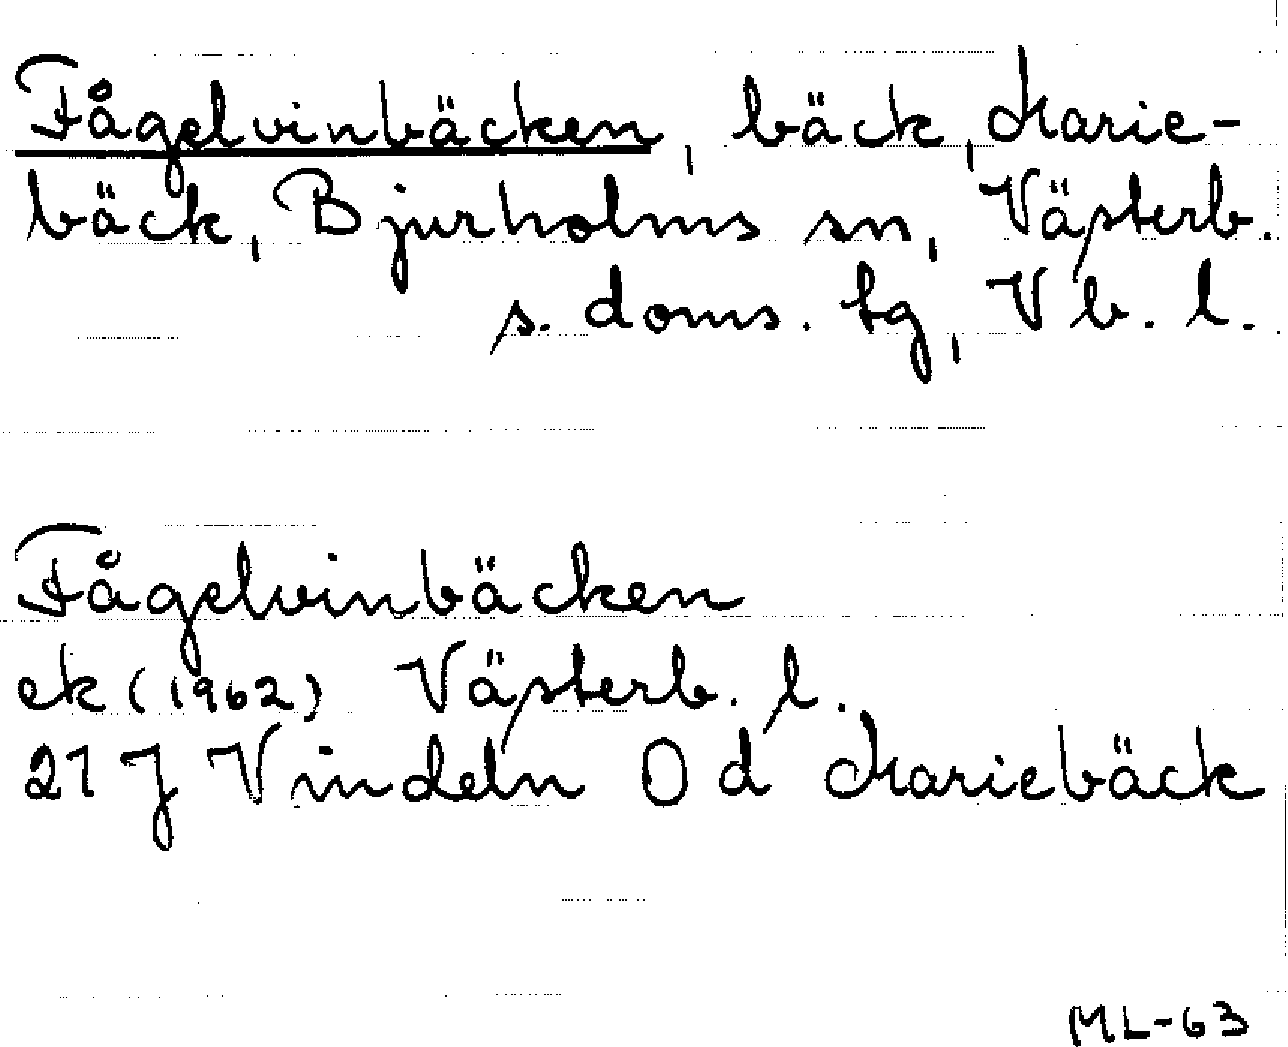 Fågelvinbäcken, bäck, Marie-
bäck, Bjurholms sn, Västerb.
s. doms. tg, Vb. l.
Fågelvinbäcken
ek (1962) Västerb. l.
21 J Vindeln 0 d Mariebäck
ML-63